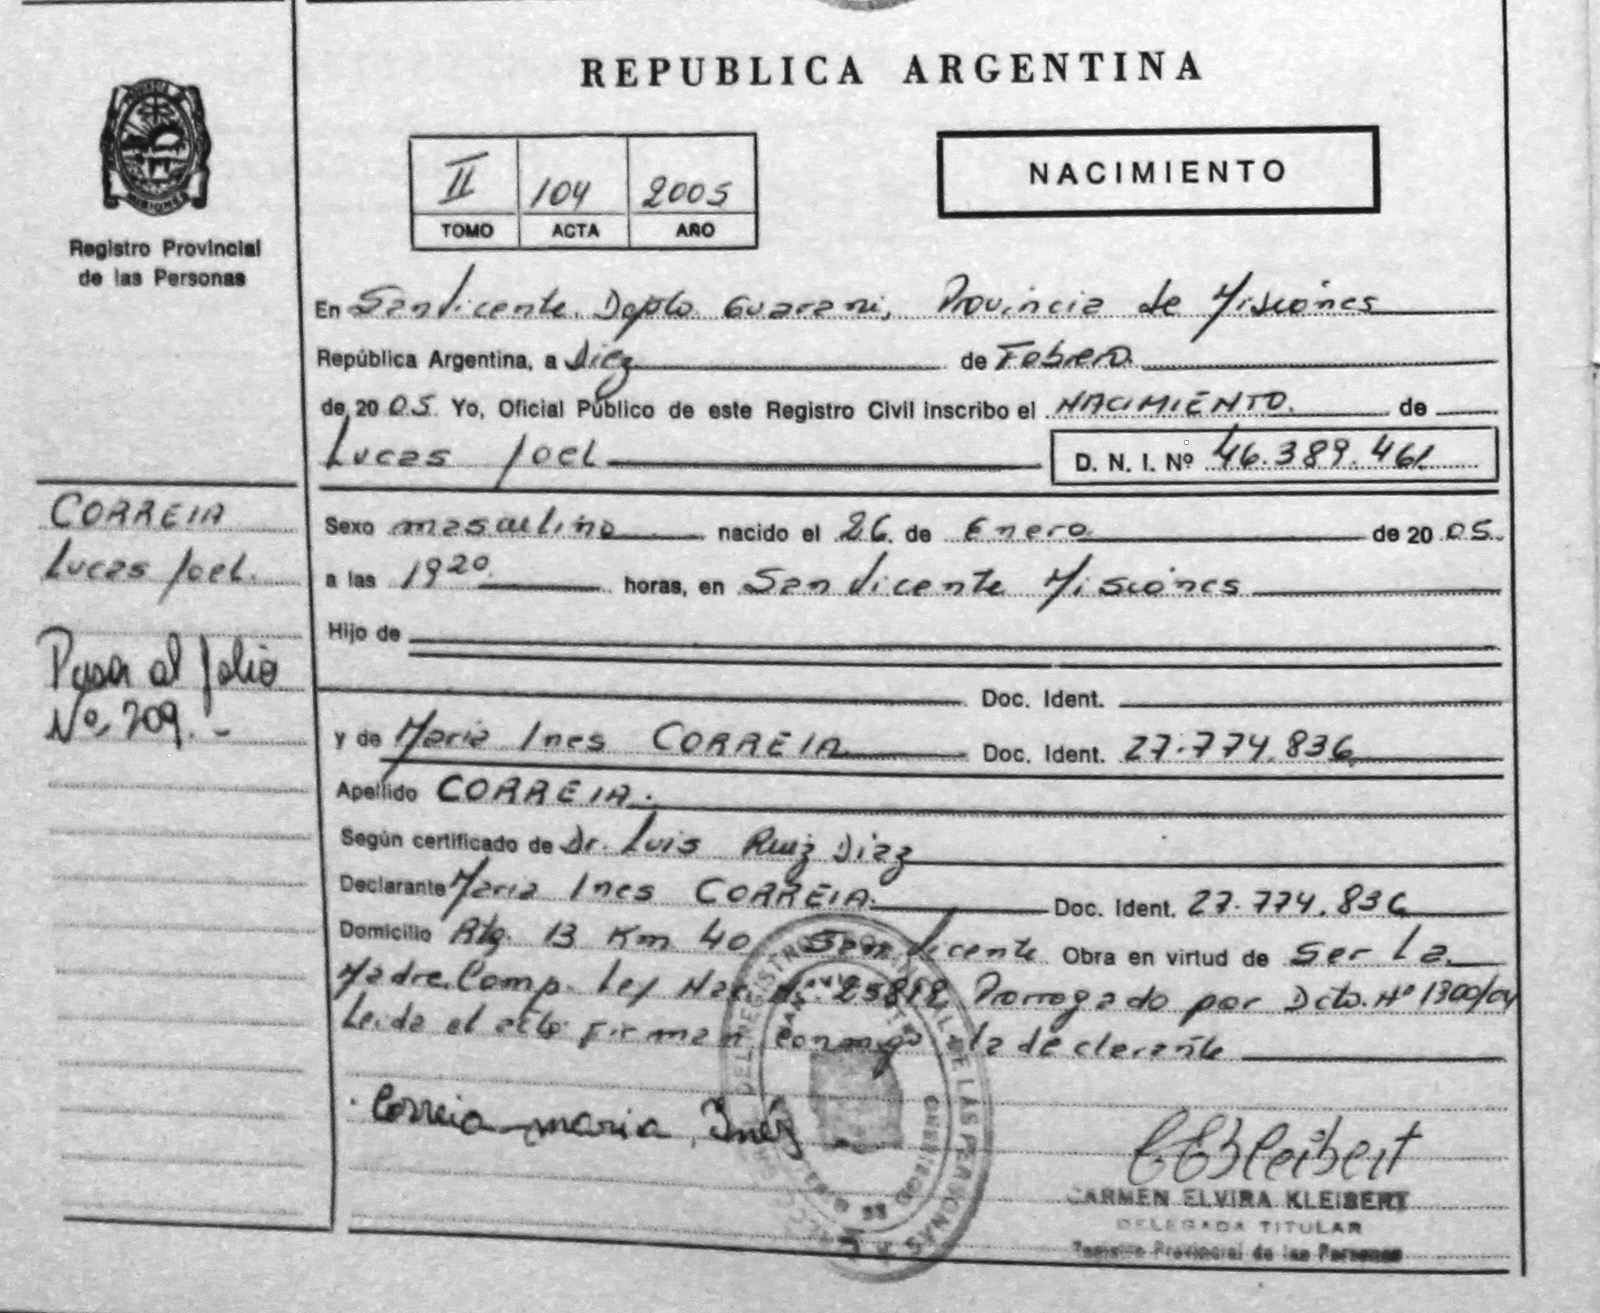 REPUBLICA ARGENTINA
MISIONES
Registro Provincial
de las Personas
II 104 2005
TOMO ACTA AÑO
NACIMIENTO
En San Vicente. Dopto Guarani, Provincia de Misiones
República Argentina, a Diez de Febrero.
de 20 05. Yo, Oficial Público de este Registro Civil inscribo el NACIMIENTO. de
Lucas Joel D. N. I. Nº 46.389.461
CORREIA
Lucas Joel.
Pasa al folio
Nº 209.-
Sexo masculino nacido el 26. de Enero de 20 05.
a las 19 20 horas, en San Vicente Misiones
Hijo de
Doc. Ident.
y de Maria Ines CORREIA Doc. Ident. 27.774.836
Apellido CORREIA.
Según certificado de Dr. Luis Ruiz Diaz
Declarante Maria Ines CORREIA. Doc. Ident. 27.774.836
Domicilio Rta. 13 Km 40 San Vicente Obra en virtud de Ser La
Madre. Comp. Ley Nac. Nº 25819 Prorrogado por Dcto. Nº 1300/04
Leida el acto firman conmigo la declarante
Correia maria Inez
CEKleibert
CARMEN ELVIRA KLEIBERT
DELEGADA TITULAR
Registro Provincial de las Personas
DEL REGISTRO DE LAS PERSONAS